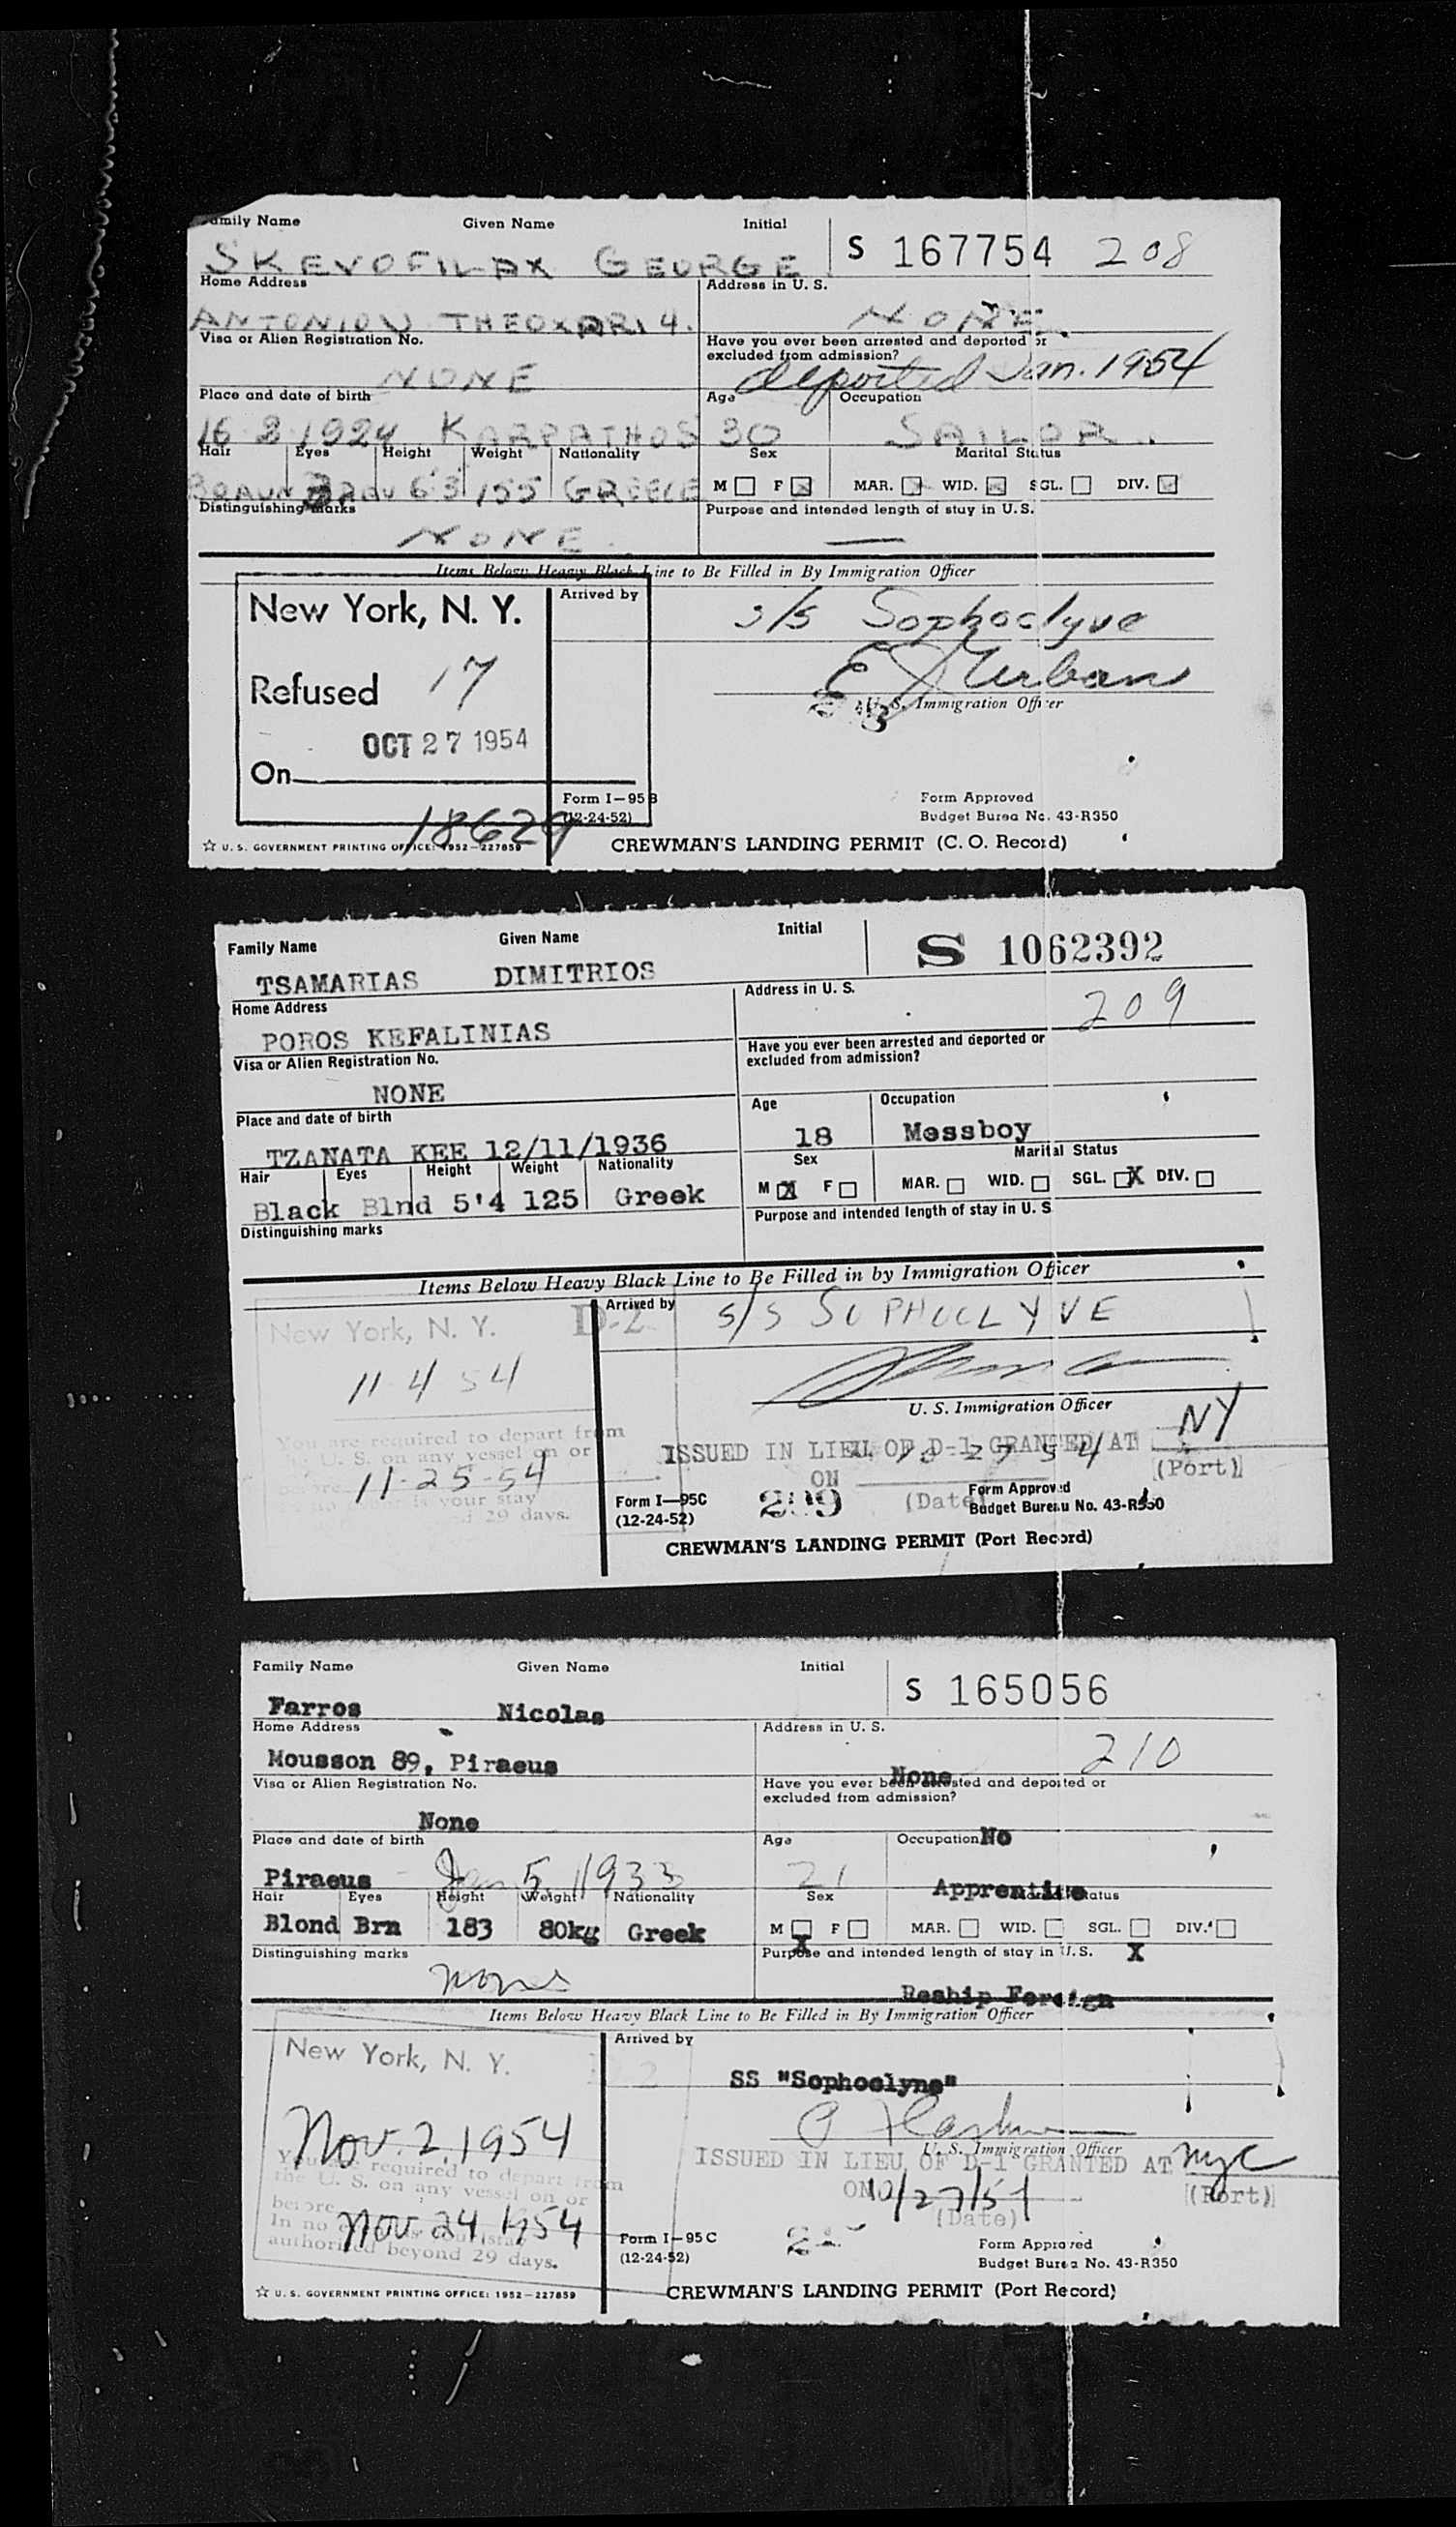 Family Name Given Name Initial
SKEVOFILAX GEORGE S 167754 208
Home Address Address in U. S.
ANTONIOU THEOXARI 4. NONE
Visa or Alien Registration No. Have you ever been arrested and deported or
excluded from admission?
NONE deported Jan. 1954
Place and date of birth Age Occupation
16 1924 KARPATHOS 30 SAILOR
Hair Eyes Height Weight Nationality Sex Marital Status
BRAUN 6 3 155 GREECE M F MAR. WID. SGL. DIV.
Distinguishing marks Purpose and intended length of stay in U.S.
NONE —
Items Below Heavy Black Line to Be Filled in By Immigration Officer
New York, N. Y. Arrived by s/s Sophoclyve
Refused 17 Urban
U. S. Immigration Officer
OCT 27 1954
On
Form I-95B Form Approved
(12-24-52) Budget Bureau No. 43-R350
18629
☆ U. S. GOVERNMENT PRINTING OFFICE: 1952-227859 CREWMAN'S LANDING PERMIT (C. O. Record)
Family Name Given Name Initial
TSAMARIAS DIMITRIOS S 1062392
Home Address Address in U. S. 209
POROS KEFALINIAS
Visa or Alien Registration No. Have you ever been arrested and deported or
excluded from admission?
NONE
Place and date of birth Age Occupation
TZANATA KEE 12/11/1936 18 Messboy
Hair Eyes Height Weight Nationality Sex Marital Status
Black Blnd 5'4 125 Greek M X F MAR. WID. SGL. X DIV.
Distinguishing marks Purpose and intended length of stay in U. S
Items Below Heavy Black Line to Be Filled in by Immigration Officer
New York, N. Y. D-2 Arrived by S/S SOPHOCLYVE
11 4 54
U. S. Immigration Officer
You are required to depart from
U. S. on any vessel on or ISSUED IN LIEU OF D-1 GRANTED AT NY
11-25-54 ON 10 27 54 (Port)
is your stay (Date)
29 days. Form I-95C 209 Form Approved
(12-24-52) Budget Bureau No. 43-R350
CREWMAN'S LANDING PERMIT (Port Record)
Family Name Given Name Initial
Farros Nicolas S 165056
Home Address Address in U. S. 210
Mousson 89, Piraeus None
Visa or Alien Registration No. Have you ever been arrested and deported or
excluded from admission?
None No
Place and date of birth Age Occupation
Piraeus - Jan 5 1933 21 Apprentice
Hair Eyes Height Weight Nationality Sex Marital Status
Blond Brn 183 80kg Greek M X F MAR. WID. SGL. X DIV.
Distinguishing marks Purpose and intended length of stay in U.S.
none Reship Foreign
Items Below Heavy Black Line to Be Filled in By Immigration Officer
New York, N. Y. Arrived by
SS "Sophoclyne"
Nov. 2, 1954
U. S. Immigration Officer
You are required to depart from ISSUED IN LIEU OF D-1 GRANTED AT NYC
the U. S. on any vessel on or ON 10/27/54 (Port)
before Nov. 24, 1954 (Date)
In no your stay
authorized beyond 29 days. Form I-95C Form Approved
(12-24-52) Budget Bureau No. 43-R350
☆ U. S. GOVERNMENT PRINTING OFFICE: 1952-227859 CREWMAN'S LANDING PERMIT (Port Record)